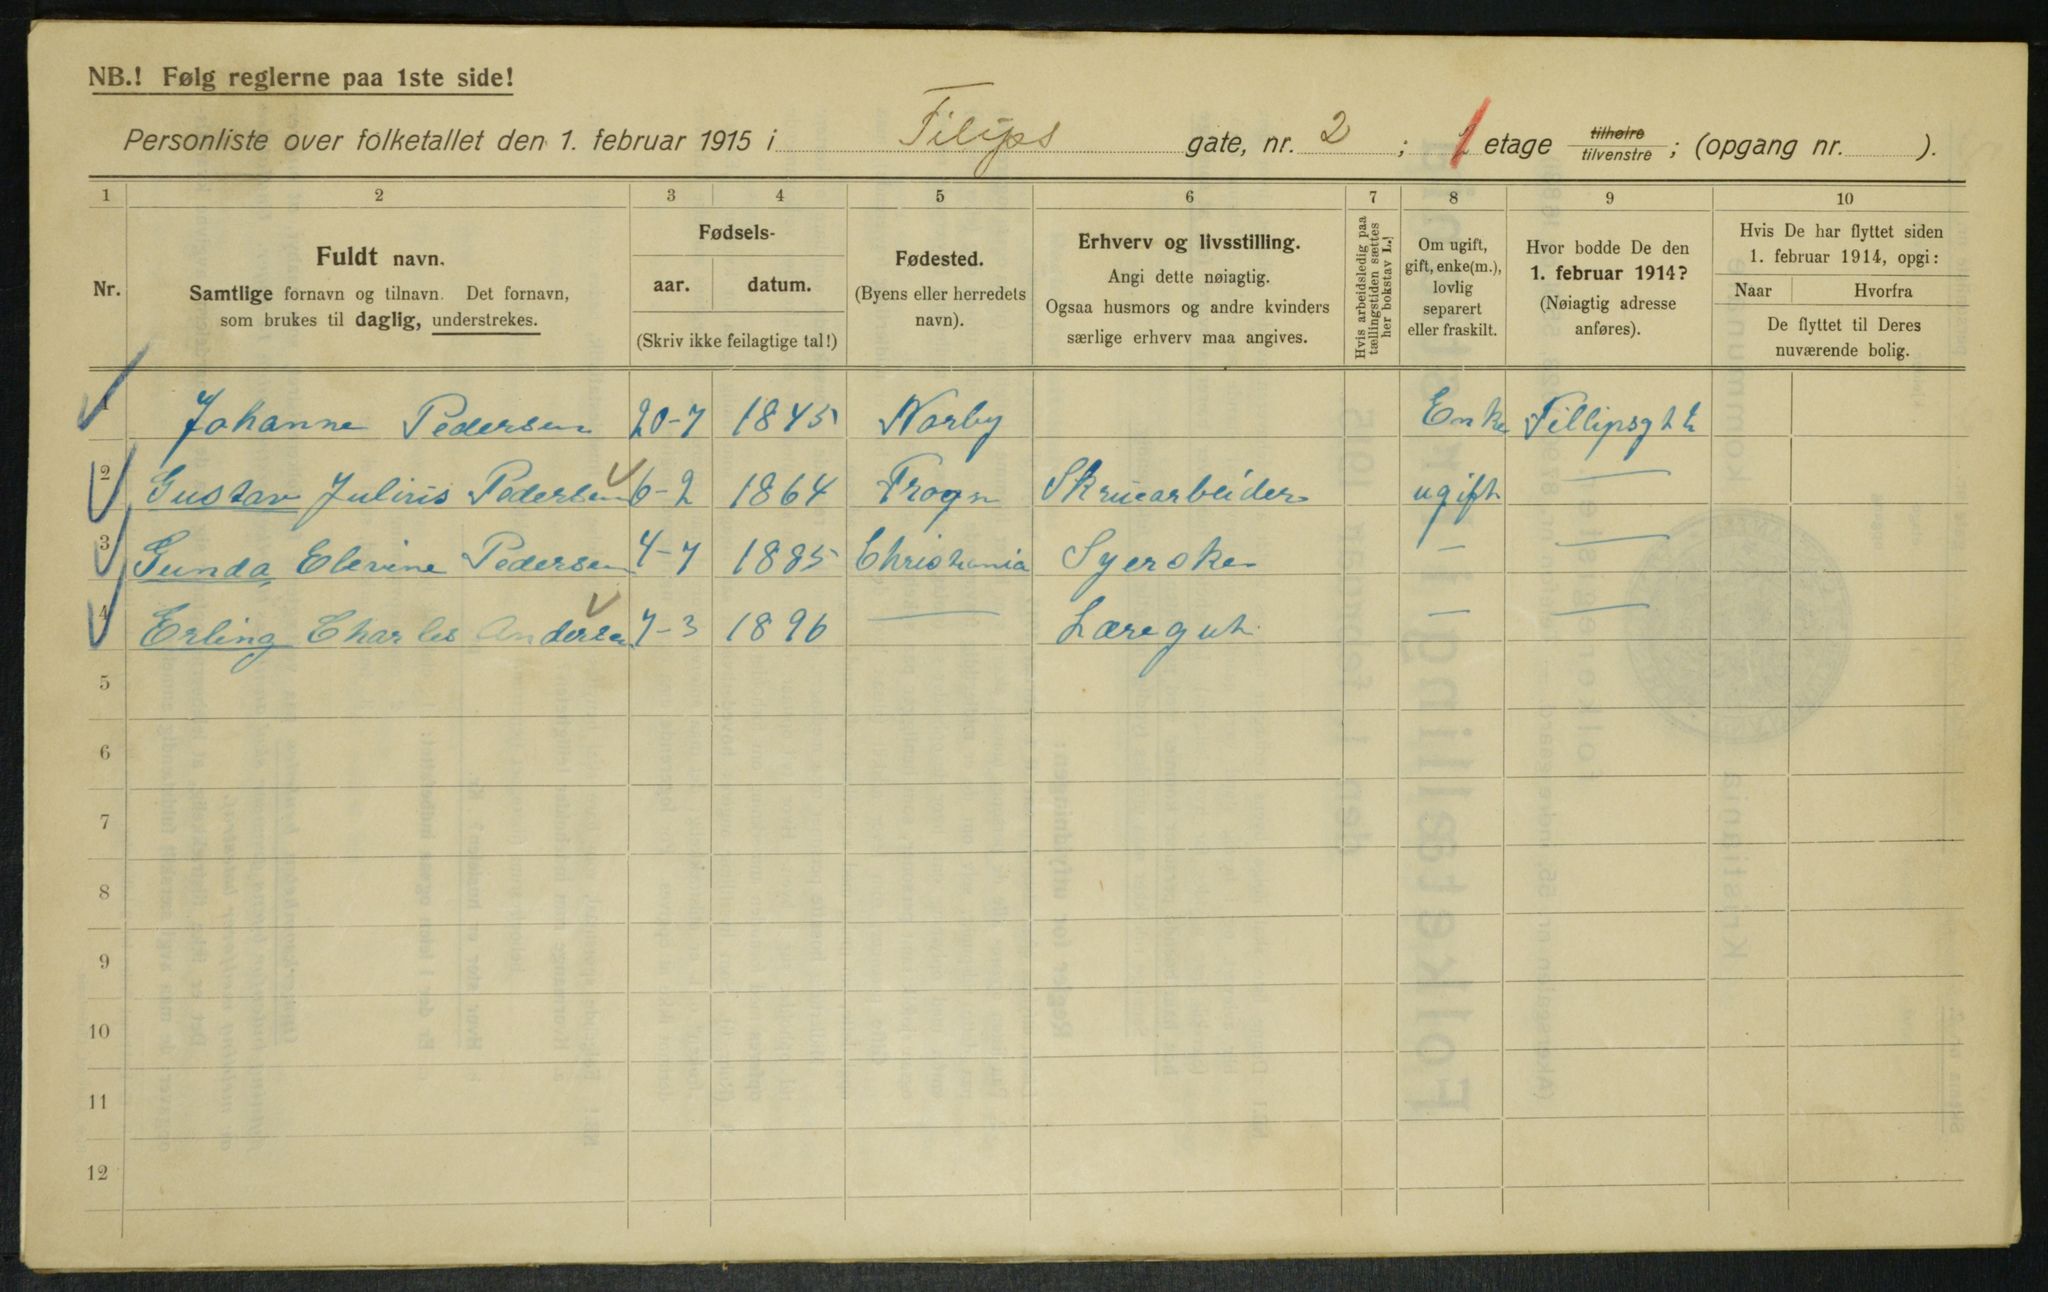 NB.! Følg reglerne paa 1ste side!
Personliste over folketallet den 1. februar 1915 i Filips gate, nr. 2 ; 1 etage tilhøire tilvenstre ; (opgang nr. ).
1 2 3 4 5 6 7 8 9 10
Nr.
Fuldt navn.
Samtlige fornavn og tilnavn. Det fornavn,
som brukes til daglig, understrekes.
Fødsels-
aar. datum.
(Skriv ikke feilagtige tal!)
Fødested.
(Byens eller herredets
navn).
Erhverv og livsstilling.
Angi dette nøiagtig.
Ogsaa husmors og andre kvinders
særlige erhverv maa angives.
Hvis arbeidsledig paa
tællingstiden sættes
her bokstav L.!
Om ugift,
gift, enke(m.),
lovlig
separert
eller fraskilt.
Hvor bodde De den
1. februar 1914?
(Nøiagtig adresse
anføres).
Hvis De har flyttet siden
1. februar 1914, opgi:
Naar Hvorfra
De flyttet til Deres
nuværende bolig.
1 Johanne Pedersen 20-7 1845 Norby Enke Fillipsgt 2
2 Gustav Julius Pedersen 6-2 1864 Frogn Skruearbeider ugift —
3 Gunda Elevine Pedersen 4-7 1885 Christiania Syerske — —
4 Erling Charles Andersen 7-3 1896 — Læregut — —
5
6
7
8
9
10
11
12